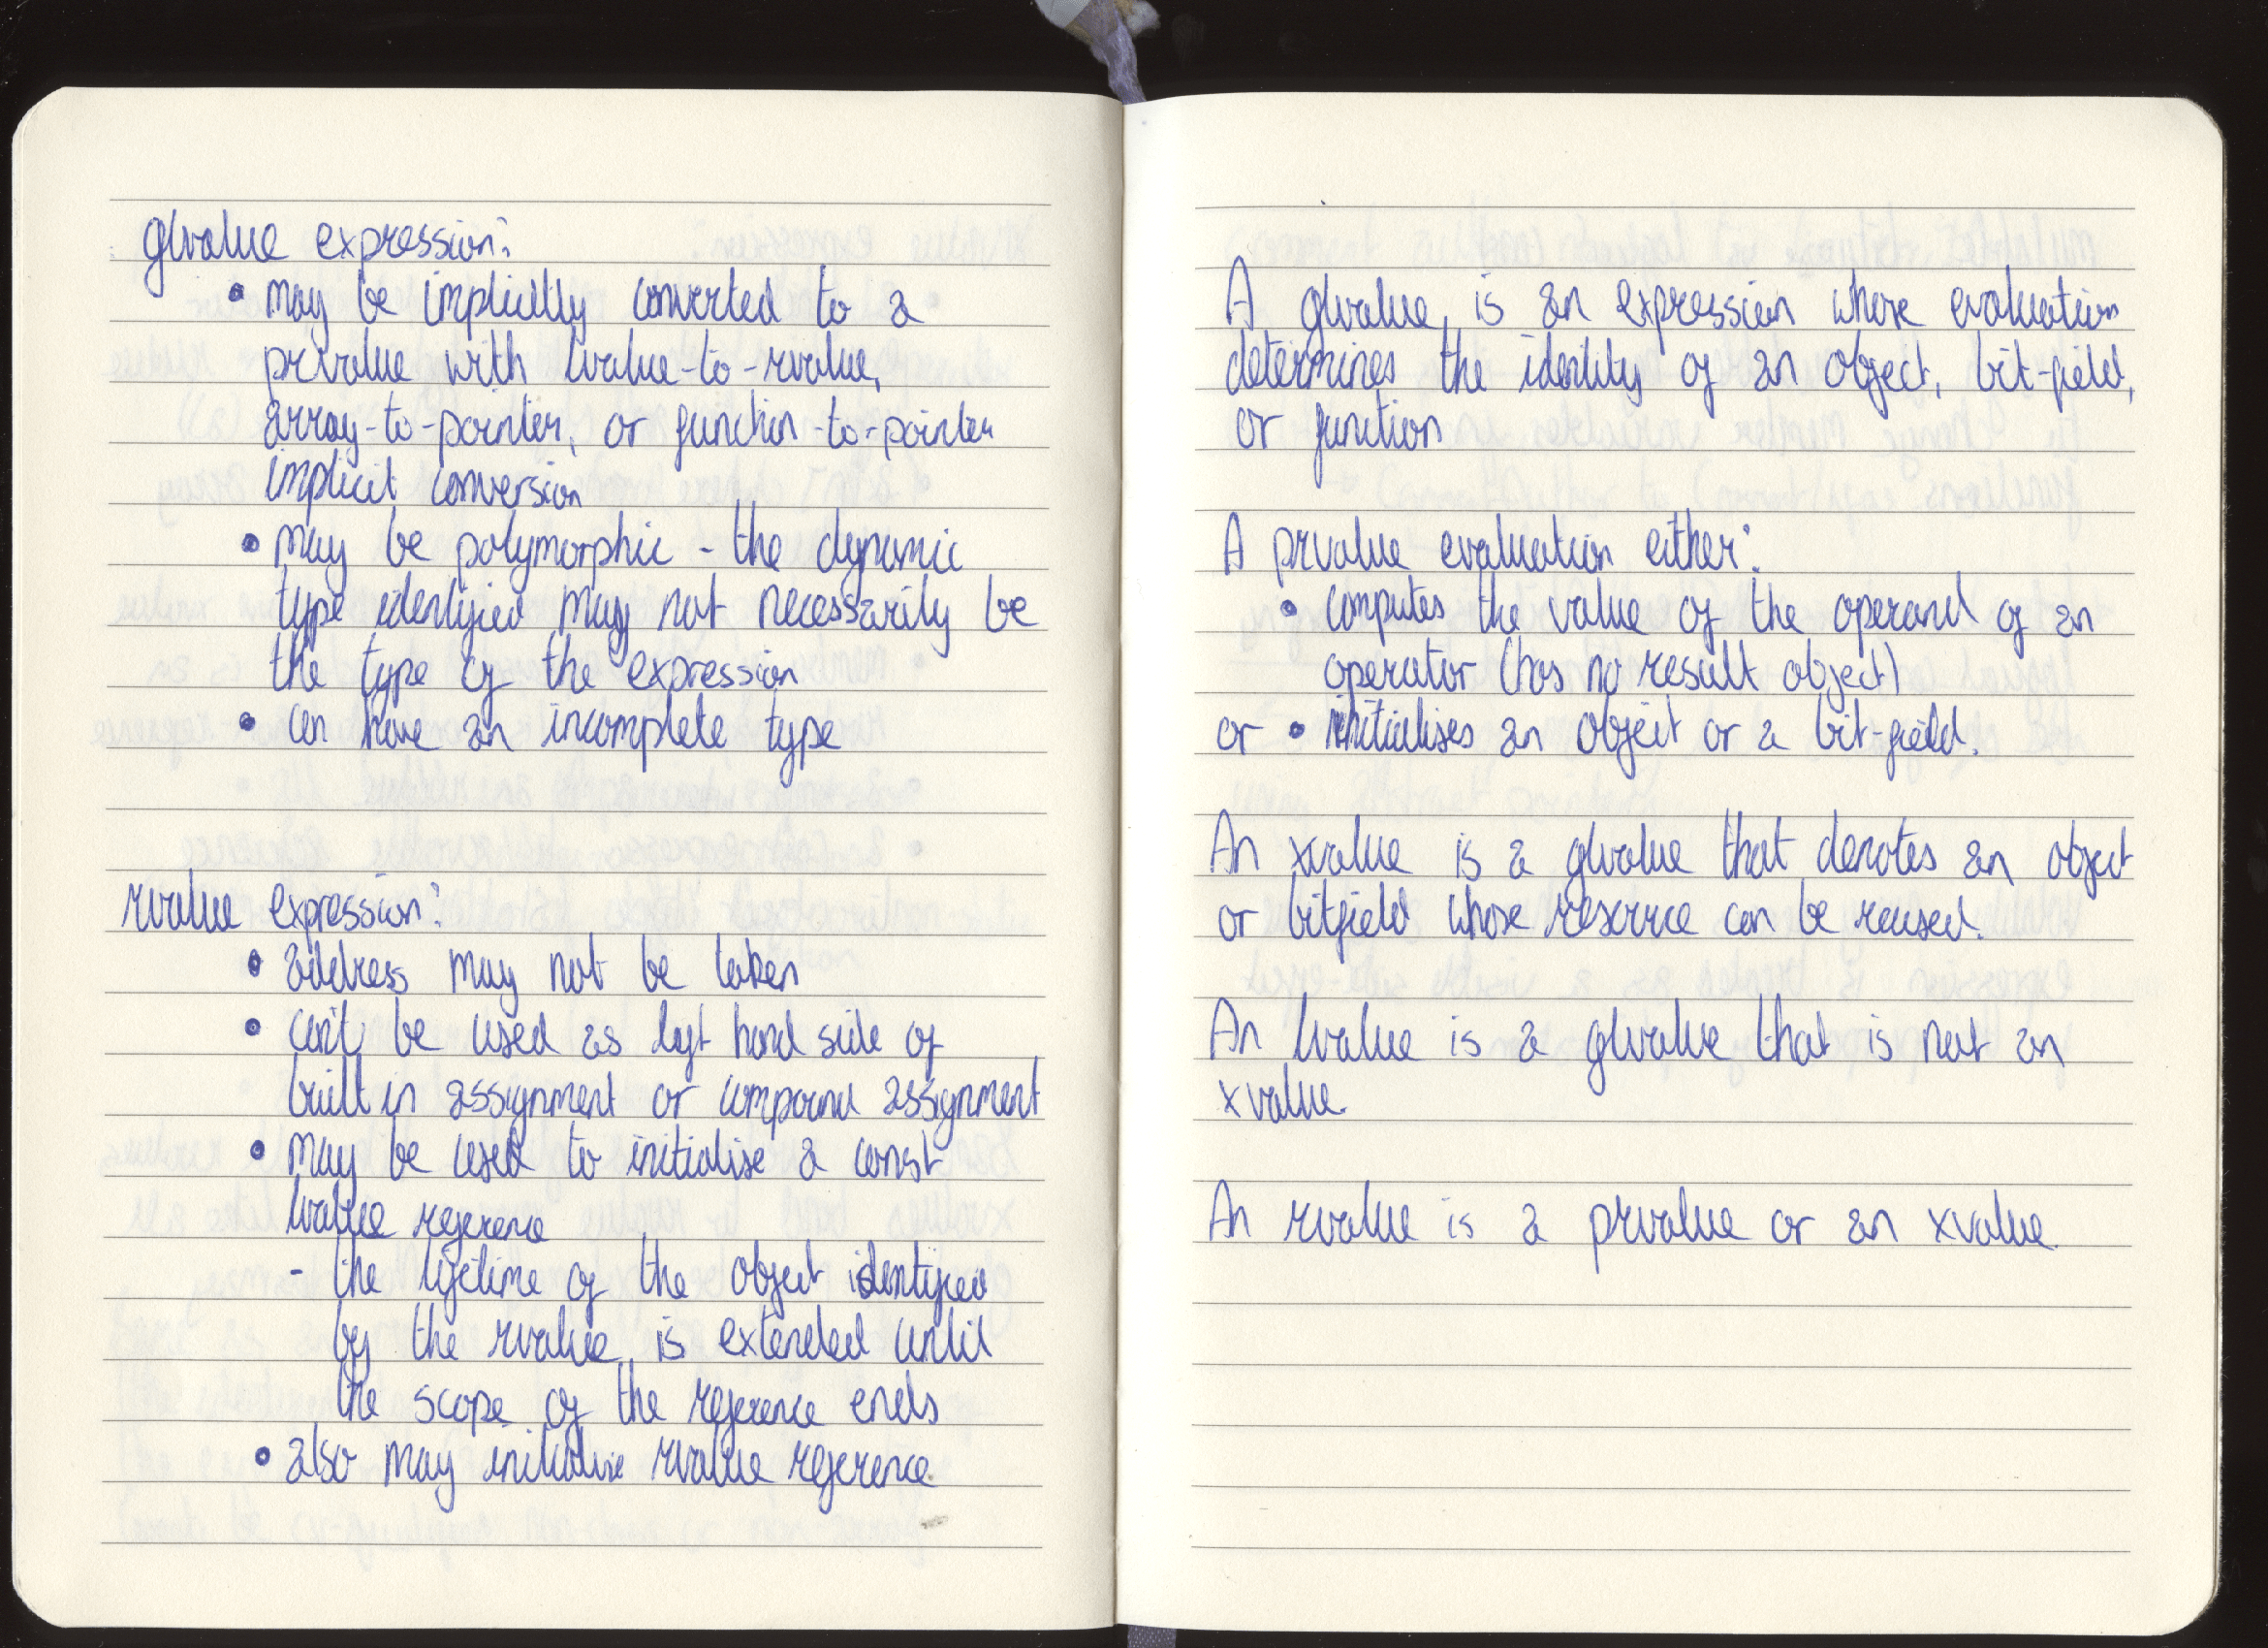 glvalue expression:
• may be implicitly converted to a
prvalue with lvalue-to-rvalue,
array-to-pointer, or function-to-pointer
implicit conversion
• may be polymorphic - the dynamic
type identified may not necessarily be
the type of the expression
• can have an incomplete type
rvalue expression:
• address may not be taken
• can't be used as left hand side of
built in assignment or compound assignment
• may be used to initialise a const
lvalue reference
- the lifetime of the object identified
by the rvalue is extended until
the scope of the reference ends
• also may initialise rvalue reference.
A glvalue is an expression whose evaluation
determines the identity of an object, bit-field,
or function
A prvalue evaluation either:
• computes the value of the operand of an
operator (has no result object)
or • initialises an object or a bit-field.
An xvalue is a glvalue that denotes an object
or bitfield whose resource can be reused.
An lvalue is a glvalue that is not an
xvalue.
An rvalue is a prvalue or an xvalue.